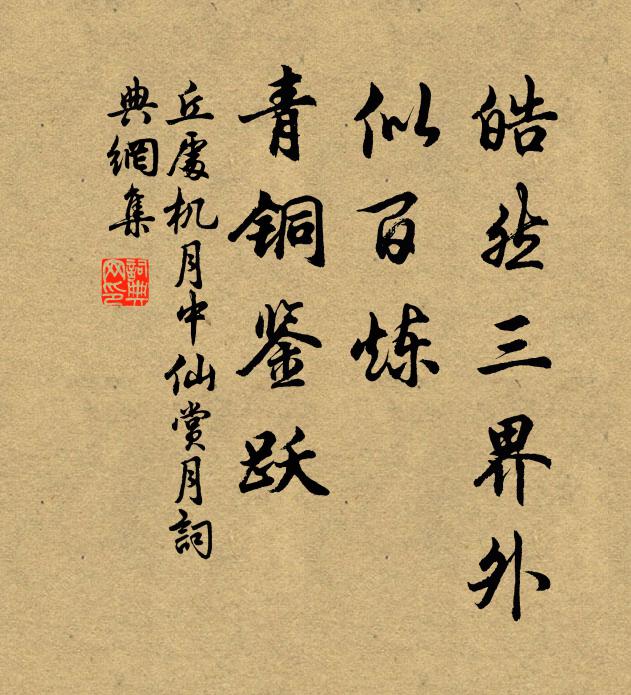 皓然三界外
似百炼
青铜鉴跃
丘處机月中仙赏月詞
典網集
詞典
网印